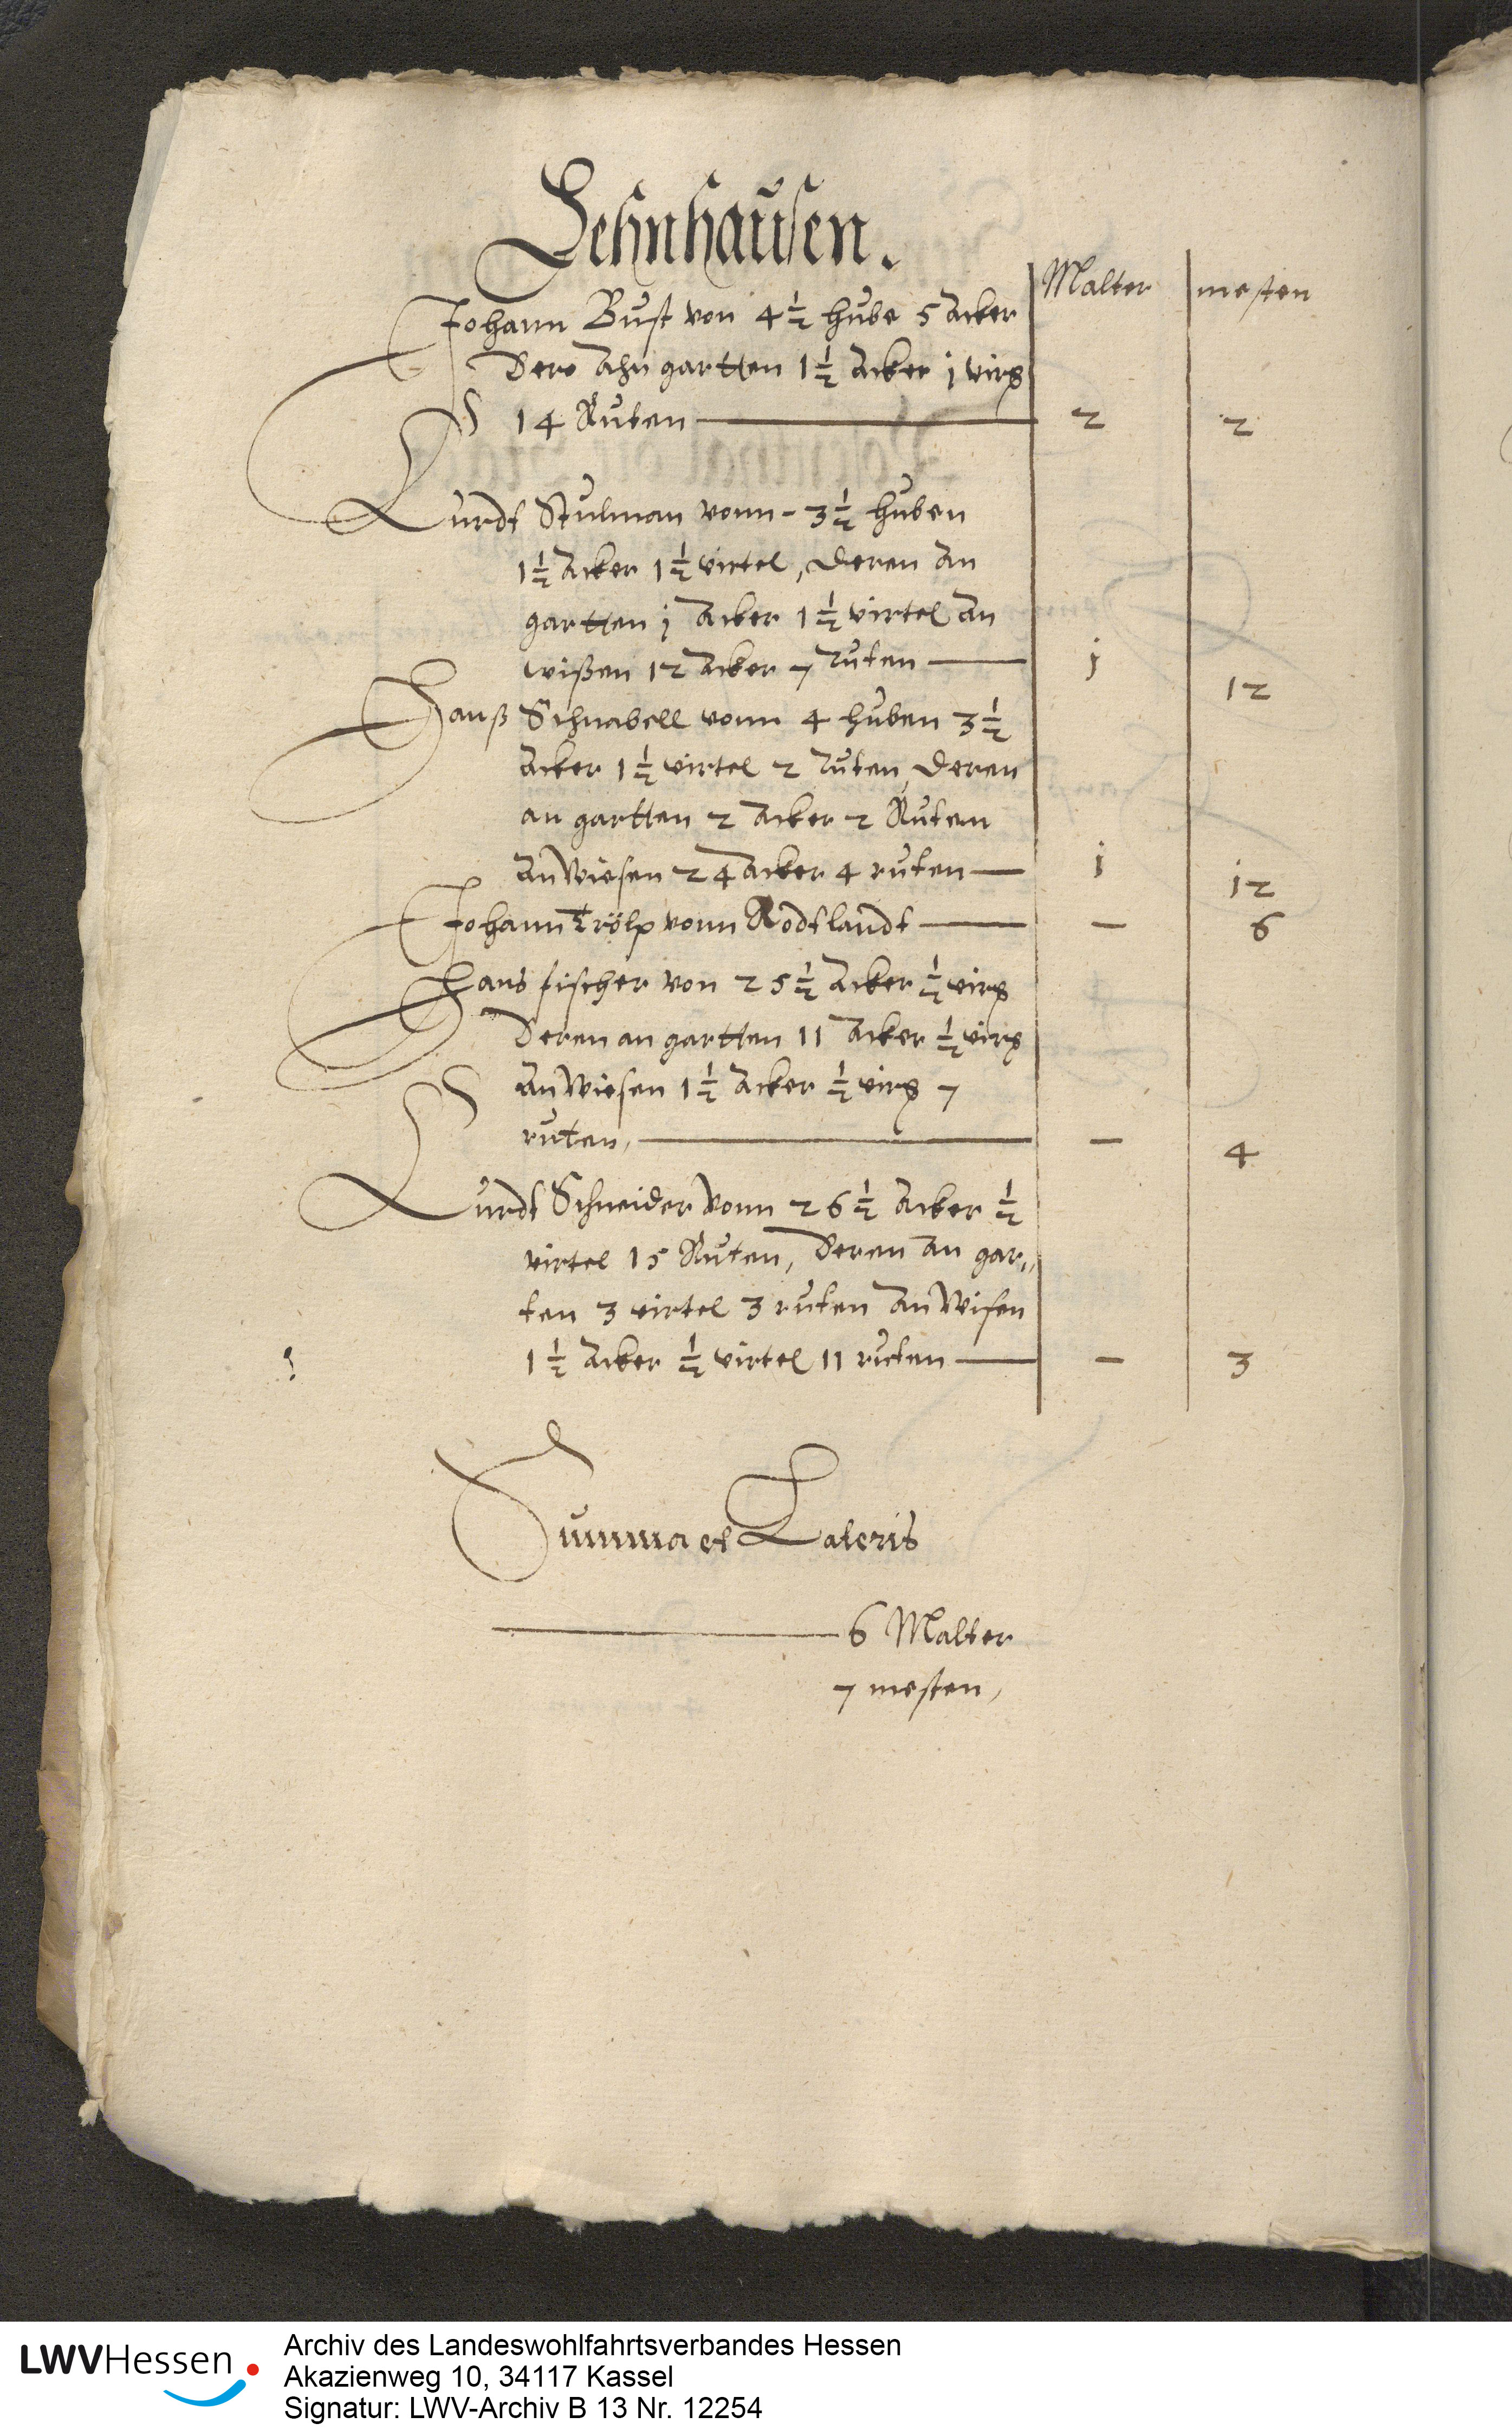 Lehnhausen.
Malter mesten
Johann Bust von 4½ hube 5 Acker
Dero Ahn gartten 1½ Acker j virß
14 Ruten — 2 2
Curdt Stulman vonn - 3½ huben
1½ Acker 1½ virtel, deren An
gartten j Acker 1½ virtel An
wißen 12 Acker 7 Ruten — j 12
Hanß Schnabell vonn 4 huben 3½
Acker 1½ virtel 2 Ruten, deren
an gartten 2 Acker 2 Ruten
An Wiesen 24 Acker 4 ruten — j 12
Johann vonn Rodtlandt — — 6
Hans fischer von 25½ Acker ½ virß
Deren an gartten 11 Acker ½ virß
An Wiesen 1½ Acker ½ virß 7
ruten, — — 4
Curdt Schneider Vonn 26½ Acker ½
virtel 15 Ruten, Deren An gar„
ten 3 virtel 3 ruten An Wisen
1½ Acker ½ virtel 11 ruten — — 3
Summa Lateris
— 6 Malter
7 mesten,
LWVHessen
Archiv des Landeswohlfahrtsverbandes Hessen
Akazienweg 10, 34117 Kassel
Signatur: LWV-Archiv B 13 Nr. 12254